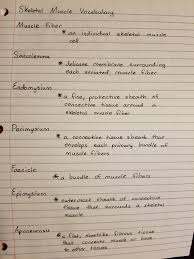 Skeletal Muscle Vocabulary
Muscle Fiber
* an individual skeletal muscle
cell
Sarcolemma
* delicate membrane surrounding
each striated muscle fiber
Endomysium
* a fine, protective sheath of
connective tissue around a
skeletal muscle
Perimysium
* a connective tissue sheath that
envelops each primary bundle of
muscle fibers
Fascicle
* a bundle of muscle fibers
Epimysium
* outermost sheath of connective
tissue that surrounds a skeletal
muscle
Aponeurosis
* a flat, sheetlike fibrous tissue
that connects muscle or bone
to other tissues